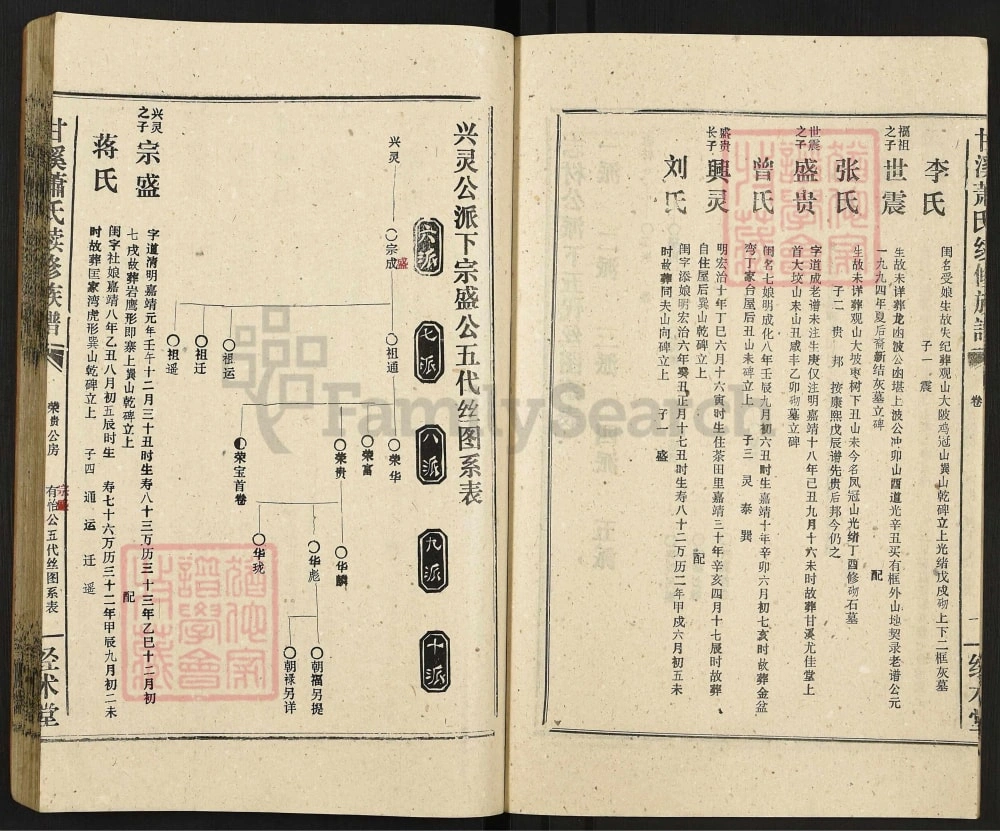 李氏
闺名受娘生故失纪葬观山大陂鸡冠山巽山乾碑立上光绪戊戌砌上下二框灰墓
子一 震
福祖之子 世震
生故未详葬龙凼波公凼堪上波公冲卯山酉道光辛丑买有框外山地契录老谱公元
一九九四年夏后裔新结灰墓立碑
配
张氏
生故未详葬观山大坡枣树下丑山未今名凤冠山光绪丁酉修砌石墓
子二 贵 邦 按康熙戊辰谱先贵后邦今仍之
世震之子 盛贵
字道成老谱未注生庚仅注明嘉靖十八年己丑九月十六未时故葬甘溪尤佳堂上
首大坟山未山丑咸丰乙卯砌墓立碑
配
曾氏
闺名七娘明成化八年壬辰九月初六丑时生嘉靖十年辛卯六月初七亥时故葬金盆
弯丁家台屋后丑山未碑立上 子三 灵 泰 巽
盛贵长子 興灵
明宏治十年丁巳六月十六寅时生住茶田里嘉靖三十年辛亥四月十七辰时故葬
自住屋后巽山乾碑立上
配
刘氏
闺字添娘明宏治六年癸丑正月十七丑时生寿八十二万历二年甲戌六月初五未
时故葬同夫山向碑立上 子一 盛
卷一
兴灵公派下宗盛公五代丝图系表
六派
七派
八派
九派
十派
兴灵
宗成
盛
祖通
祖运
祖迁
祖遥
荣华
荣富
荣贵
荣宝首卷
华麟
华彪
华珑
朝福另提
朝禄另详
兴灵之子 宗盛
字道清明嘉靖元年壬午十二月三十丑时生寿八十三万历三十三年乙巳十二月初
七戌故葬岩鹰形即寨上巽山乾碑立上
配
蒋氏
闺字社娘嘉靖八年乙丑八月初五辰时生 寿七十六万历三十二年甲辰九月初二未
时故葬匡家湾虎形巽山乾碑立上 子四 通 运 迁 遥
甘溪萧氏续修族谱
荣贵公房
有怡公五代丝图系表
宗盛
FamilySearch